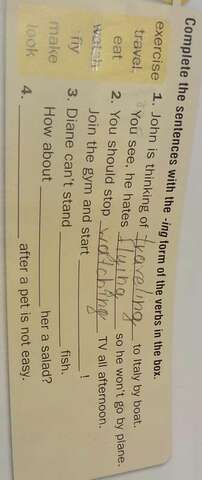 Complete the sentences with the -ing form of the verbs in the box.
exercise
travel
eat
watch
fly
make
look
1. John is thinking of traveling to Italy by boat.
You see, he hates flying so he won't go by plane.
2. You should stop watching TV all afternoon.
Join the gym and start ________ !
3. Diane can't stand ________ fish.
How about ________ her a salad?
4. ________ after a pet is not easy.